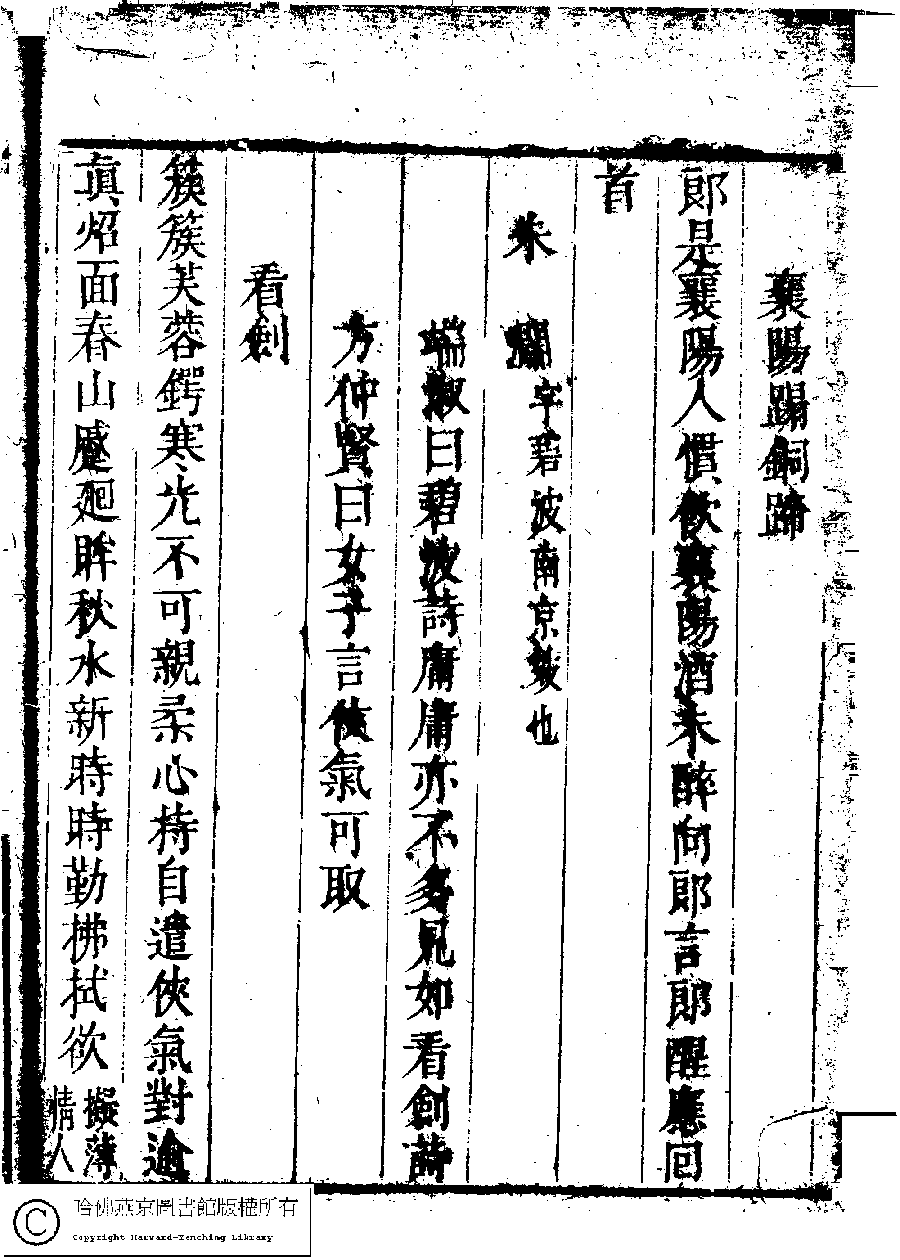 襄陽蹋銅蹄
郎是襄陽人慣飲襄陽酒未醉向郎言郎醒應回
首
朱 字碧波南京妓也
端淑曰碧波詩庸庸亦不多見如看劍詩
方仲賢曰女子言俠氣可取
看劍
簇簇芙蓉鍔寒光不可親柔心持自遣俠氣對逾
真炤面春山蹙廻眸秋水新時時勤拂拭欲擬薄情人
哈佛燕京圖書館版權所有
Copyright Harvard-Yenching Library